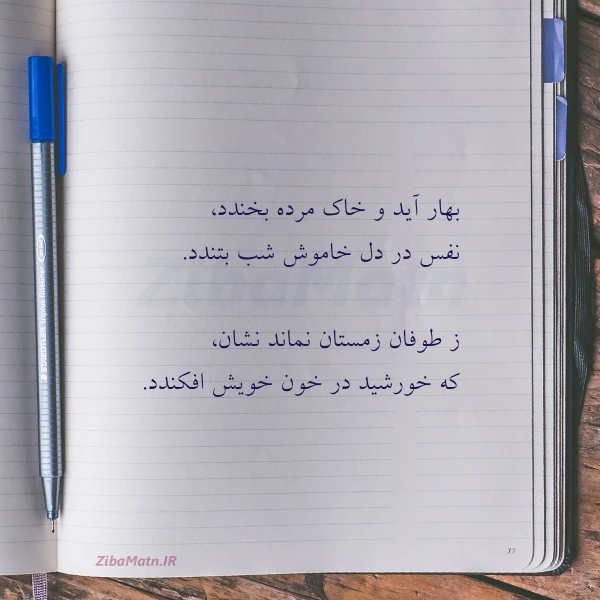 بهار آید و خاک مرده بخندد،
نفس در دل خاموش شب بتندد.
ZibaMatn
ز طوفان زمستان نماند نشان،
که خورشید در خون خویش افکندد.
77
ZibaMatn.IR